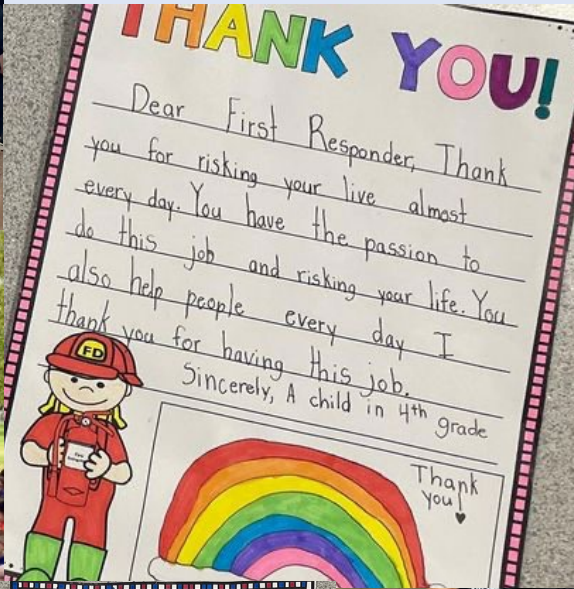 THANK YOU!
Dear First Responder, Thank
you for risking your live almost
every day. You have the passion to
do this job and risking your life. You
also help people every day I
thank you for having this job.
Sincerely, A child in 4th grade
FD
Thank
you!